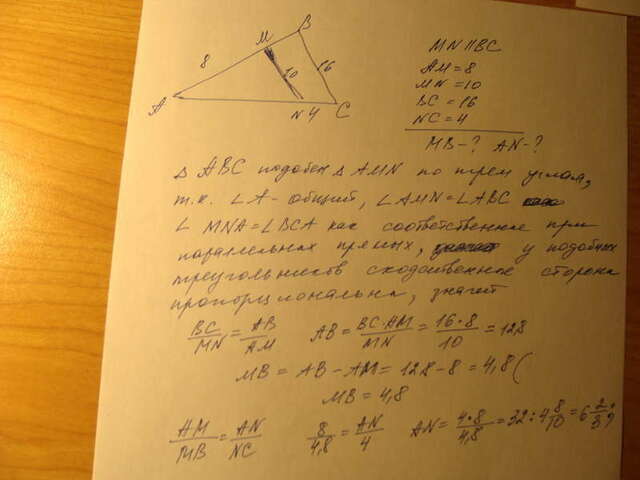 B
M
8
10
16
A
N 4
C
MN || BC
AM = 8
MN = 10
BC = 16
NC = 4
MB - ? AN - ?
Δ ABC подобен Δ AMN по трем углам,
т.к. ∠A - общий, ∠AMN = ∠ABC
∠ MNA = ∠BCA как соответственные при
параллельных прямых, у подобных
треугольников сходственные стороны
пропорциональны, значит
BC/MN = AB/AM AB = BC·AM/MN = 16·8/10 = 12,8
MB = AB - AM = 12,8 - 8 = 4,8
MB = 4,8
AM/MB = AN/NC 8/4,8 = AN/4 AN = 4·8/4,8 = 32 : 4 8/10 = 6 2/3